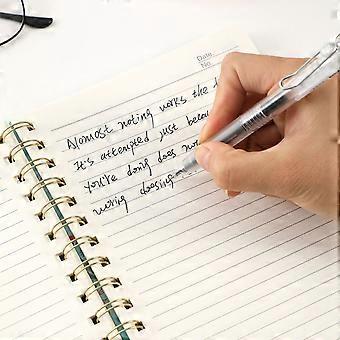 Date.
No.
Nomost noting works the
It's attempted just becau
you're dong does no
wring doesing